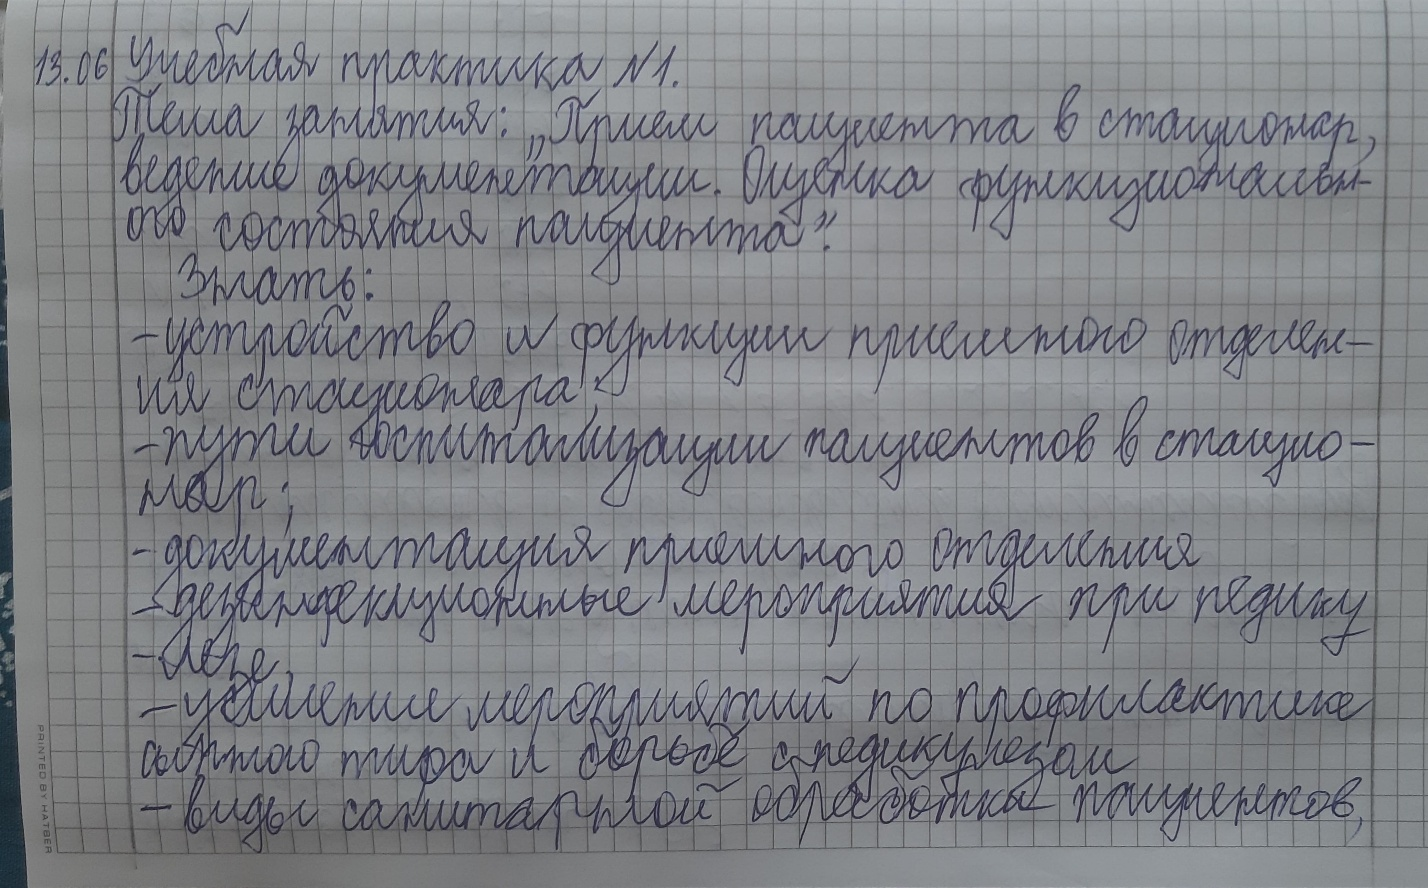 13.06 Учебная практика №1.
Тема занятия: „Прием пациента в стационар,
ведение документации. Оценка функциональн-
ого состояния пациента".
Знать:
-устройство и функции приемного отделен-
ия стационара;
-пути госпитализации пациентов в стацио-
нар;
-документация приемного отделения
-дезинфекционные мероприятия при педику
-лезе,
-усиление мероприятий по профилактике
сыпного тифа и борьбе с педикулезом
-виды санитарной обработки пациентов,
PRINTED BY HATBER